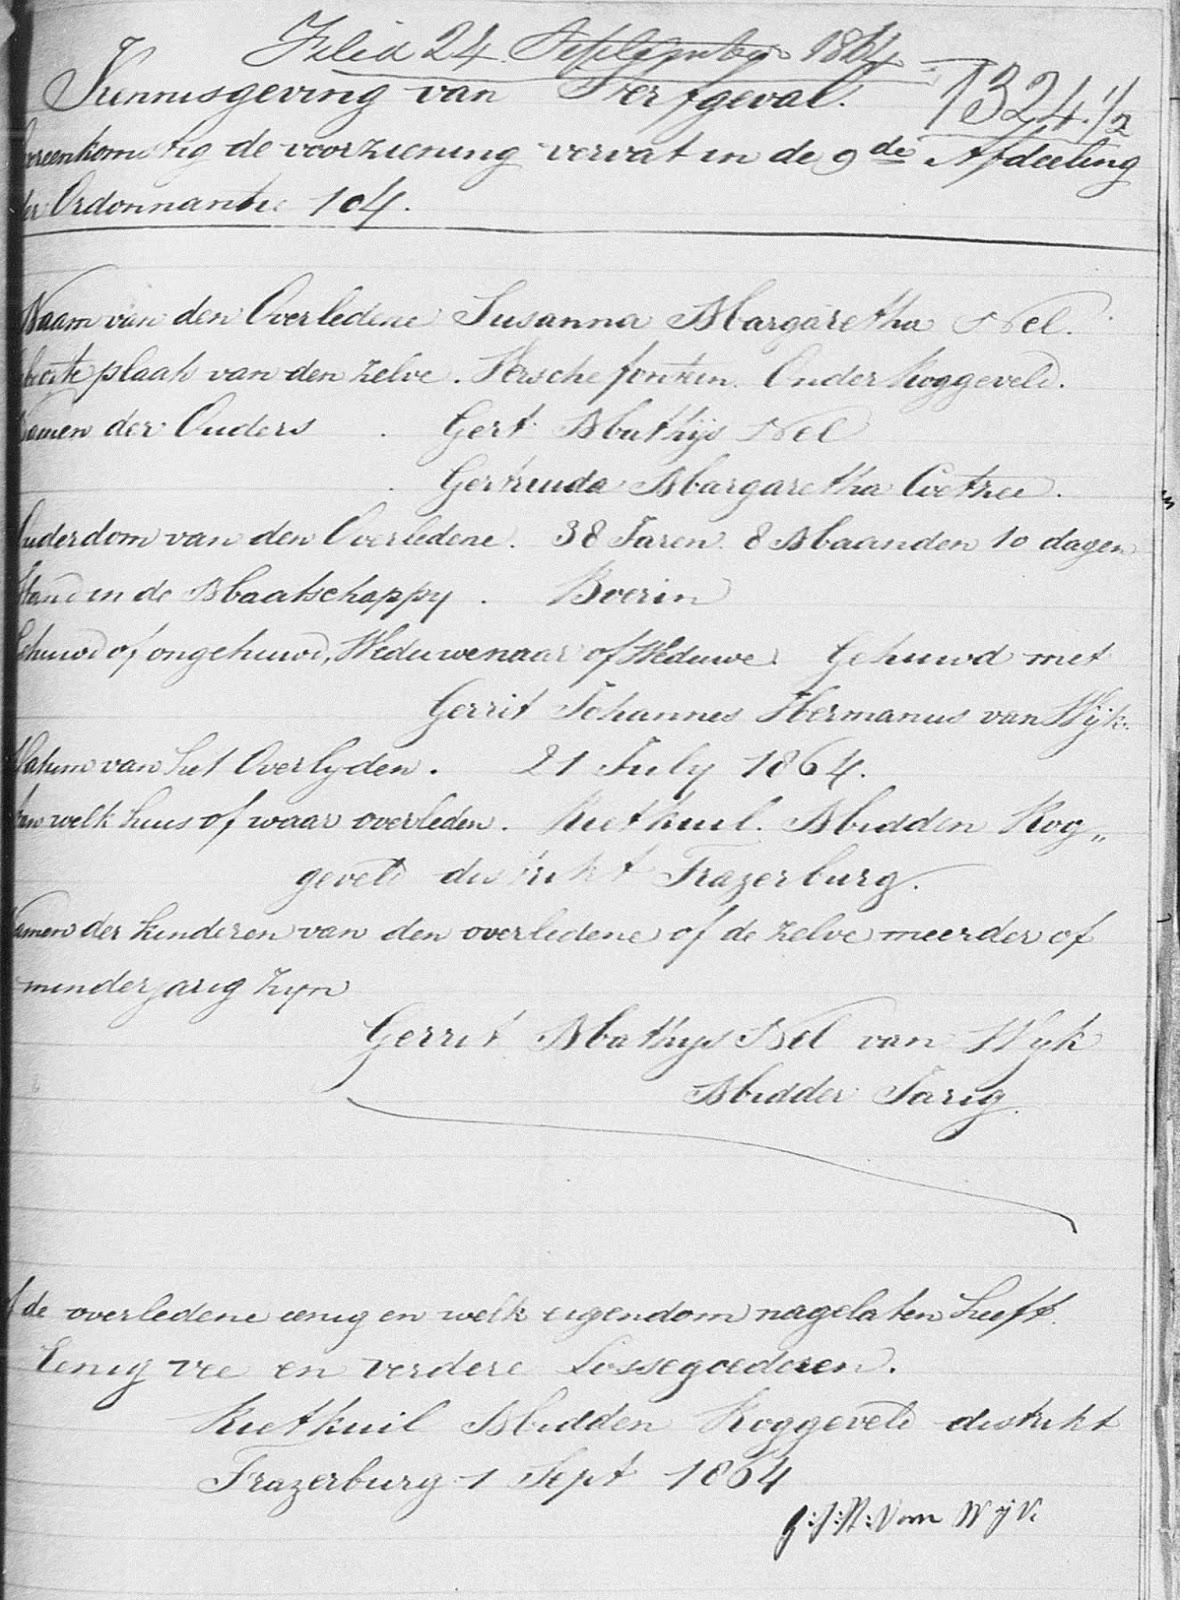 Filed 24 September 1864
1324 1/2
Kennisgeving van Sterfgeval.
overeenkomstig de voorziening vervat in de 9de Afdeeling
der Ordonnantie 104.
Naam van den Overledene Susanna Margaretha Nel.
plaats van den zelve. fontein. Onder Roggeveld.
Namen der Ouders . Gert Mathijs Nel
. Gertruida Margaretha Coetzee.
Ouderdom van den Overledene. 38 Jaren 8 Maanden 10 dagen
Stand in de Maatschappy . Boerin
Gehuwd of ongehuwd, Weduwenaar of Weduwe. Gehuwd met
Gerrit Johannes Hermanus van Wijk.
Datum van het Overlyden. 21 July 1864.
In welk huis of waar overleden. Rietkuil. Midden Rog„
geveld distrikt Frazerburg.
Namen der kinderen van den overledene of de zelve meerder of
minderjarig zyn
Gerrit Mathys Nel van Wyk
Minder Jarig.
Of de overledene eenig en welk eigendom nagelaten heeft.
Eenig vee en verdere Lossegoederen.
Rietkuil Midden Roggeveld distrikt
Frazerburg 1 Sept 1864
G:J:H: van Wijk